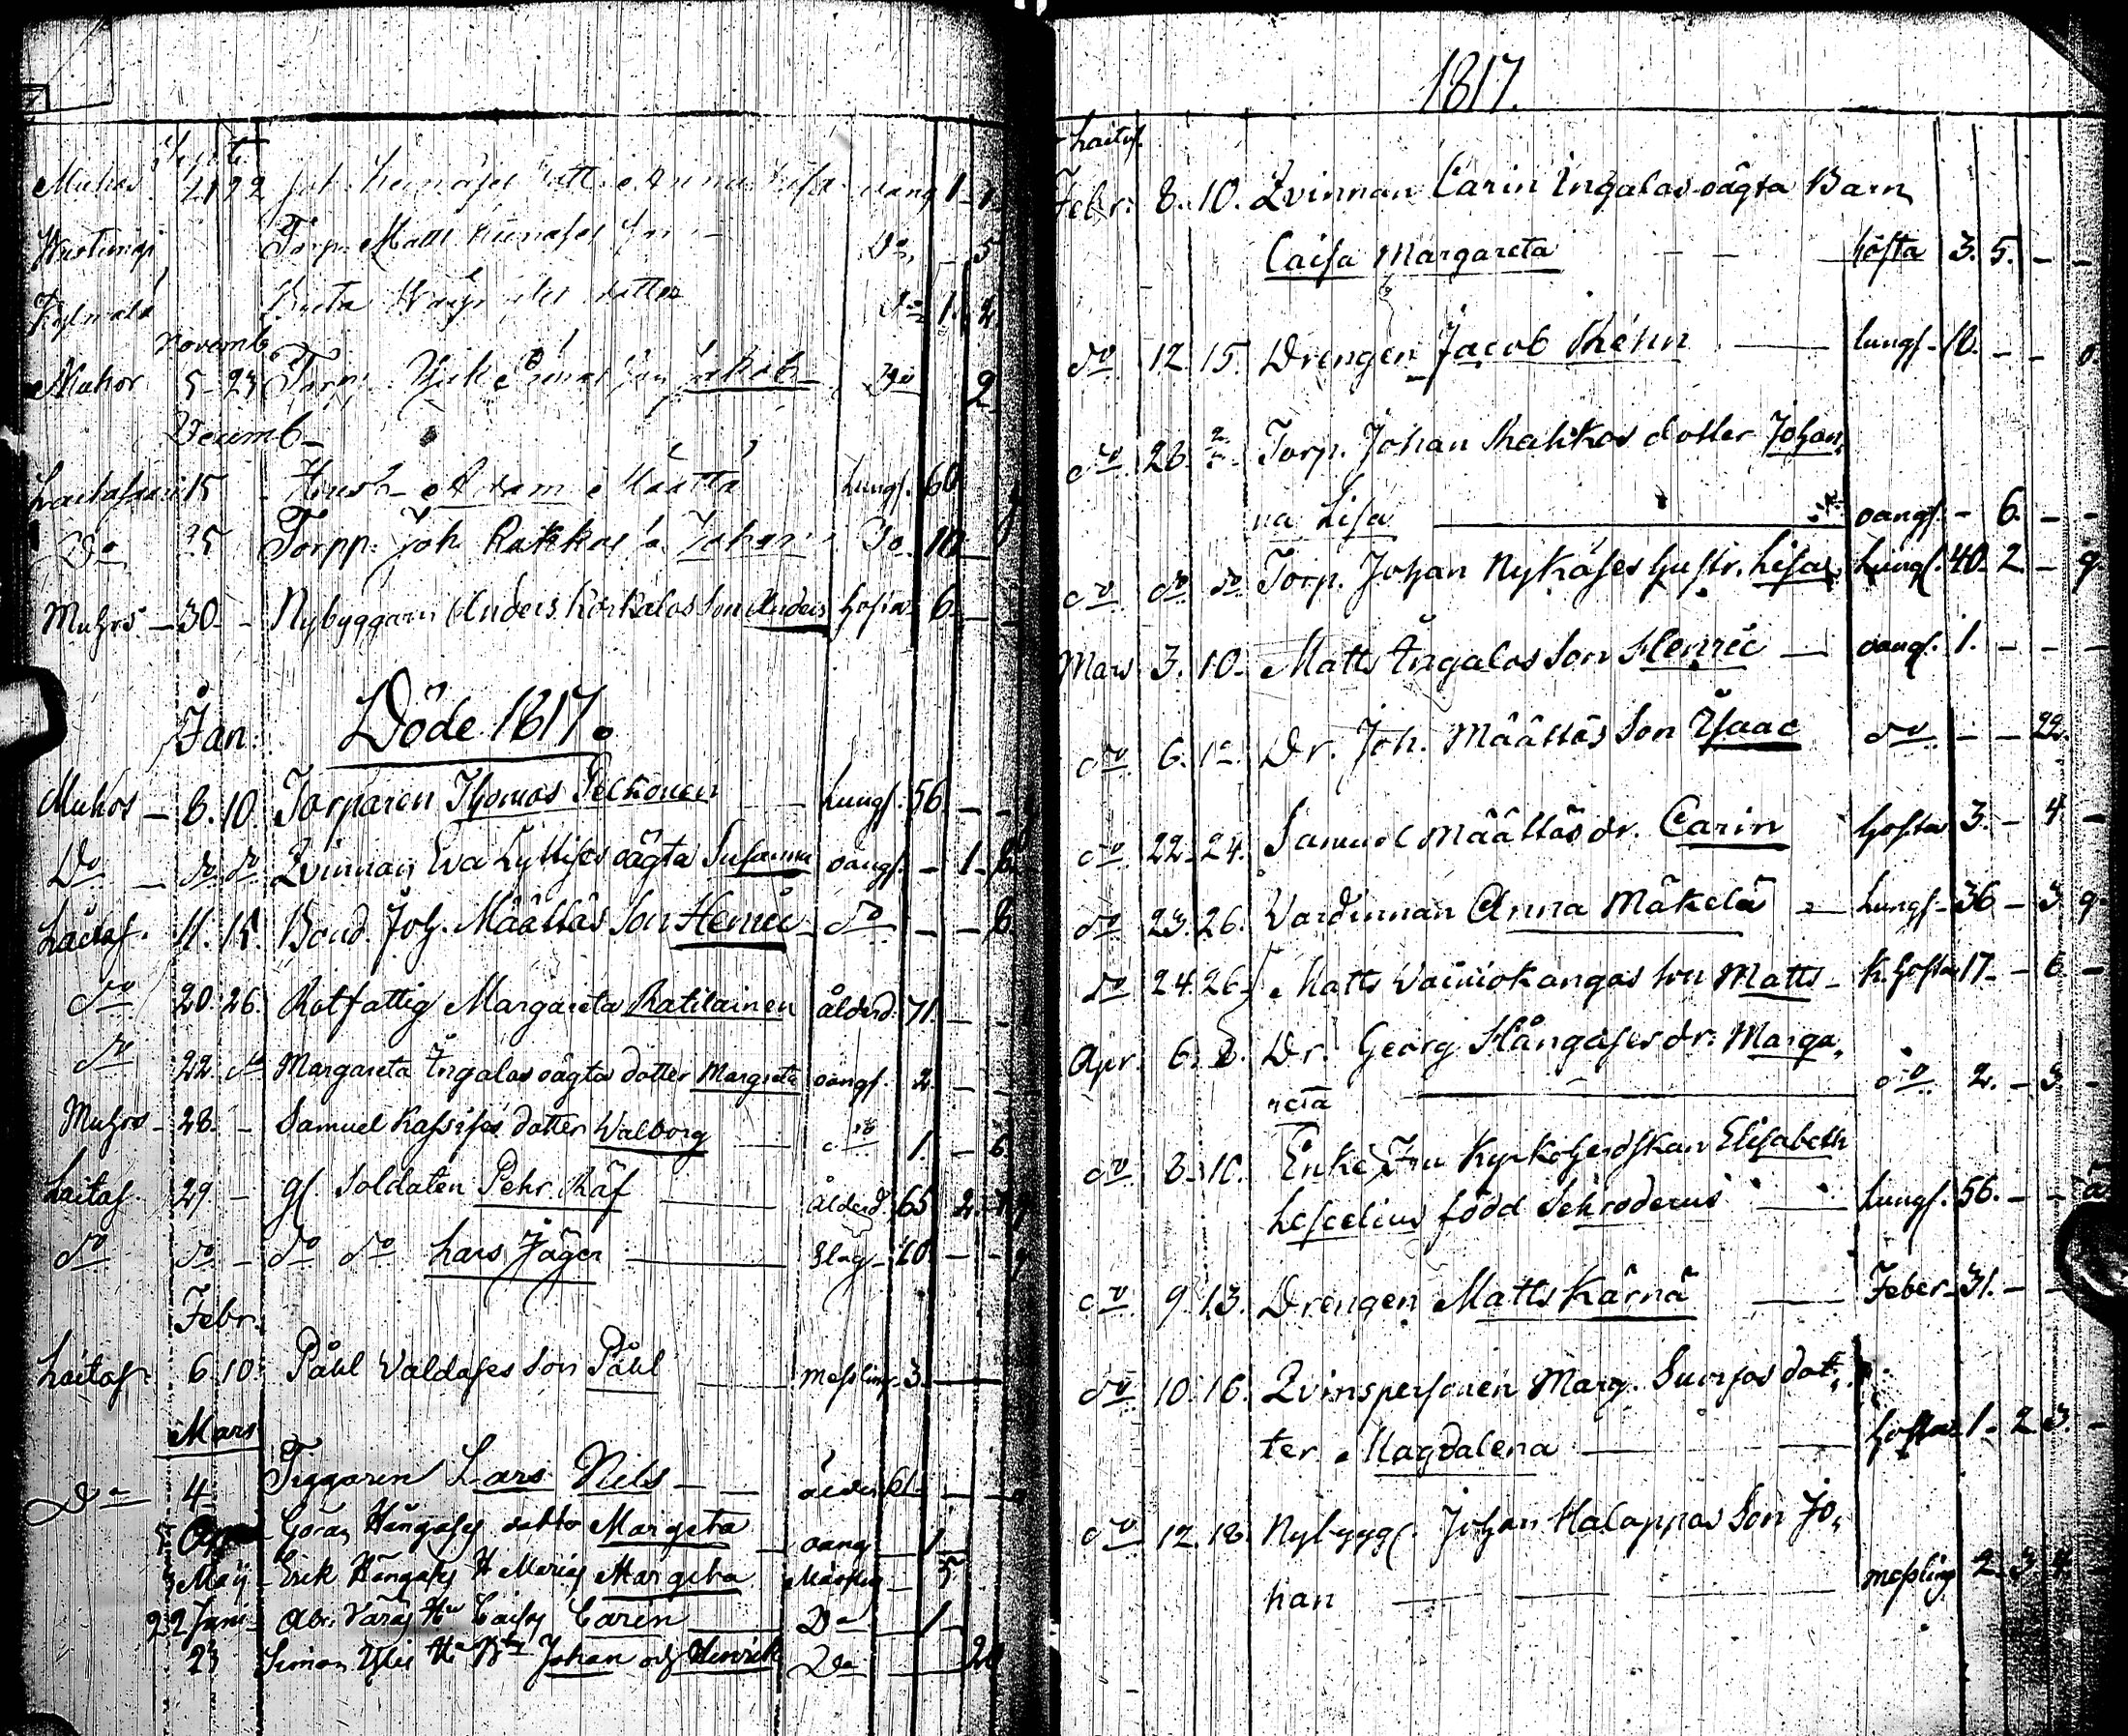 Muhos 21 22 Joh. dotter Anna Lisa oang 1 1
Torp. Matts son Do 5
dotter Do 1 2
Novemb.
Muhos 5 - 23 Torp. son Jakob Do 2
Decemb
Laitasaari 15 Abram Määttä Lungs. 60
Do 25 Torpp. Joh. Rakkos s. Johan Do 10
Muhos - 30 - Nybyggaren Anders Korkalos son Anders hosta 6
Jan. Döde 1817.
Muhos - 8. 10. Torparen Thomas Pelkonen Lungs. 56. - -
Do - do do Qvinnan Eva Lyttises oägta Susanna oangf. - 1. 8
Laitas. 11. 15. Bond. Joh. Määttäs Son Henric do - - 8
do 20. 26. Rotfattig Margareta Ratilainen ålderd. 71. - -
do 22. do Margareta Ingalas oägta dotter Margreta oangf. 2. - -
Muhos - 28. - Samuel Kassises dotter Walborg do 1. - 6
Laitas. 29. - gl. Soldaten Pehr Räf Ålderd. 65 2.
do do - do do Lars Jäger Slag - 60. - -
Febr.
Laitas. 6. 10. Påhl Valdases Son Påhl messling 3. -
Mars
Do 4 Tiggaren Lars Nils - - ålder 61. - -
5 Göran Hångases dotter Margeta oang 1
3 Maij - Erik Hångases H Marias Margeta Mässling - 5
22 Juni - Abr. Caisas Caren Do 1
23 Simon Johan och Henrik Do 20
1817.
Laitas.
Febr. 8. 10. Qvinnan Carin Ingalas oägta Barn
Caisa Margareta - - hosta 3. 5. - -
do 12 15. Drengen Jacob Rehn lungs - 18. - -
do 23. Torp. Johan Rahkos dotter Johan
na Lisa oangf. - 6. - -
do do do Torp. Johan Nykäses hustr. Lisa Lungs. 40. 2 - g.
Mars 3. 10. Matts Ingalas Son Henric - oangf. 1. - - -
do 6. 10. Dr. Joh. Määttäs Son Isaac do - - 22.
do 22. 24. Samuel Määttäs dr. Carin hosta 3. - 4. -
do 23. 26. Värdinnan Anna Mäkelä - Lungs - 36 - 3. g.
do 24. 26. Matts Vainiokangas Son Matts - K. hosta 17. - 6 -
Apr. 6. 8. Dr. Georg Hångases dr. Marga
reta do 2. - 3. -
do 8. 10. Enke Fru Kyrkoherdskan Elisabeth
Lescelius född Schroderus Lungs. 56. - -
do 9. 13. Drengen Matts Kärnä Feber - 31. - -
do 10. 16. Qvinspersonen Marg. Suorsas dot
ter Magdalena hosta 1. 2 3. -
do 12. 18. Nybygg. Johan Halappas Son Jo
han messling 2. 3 4.